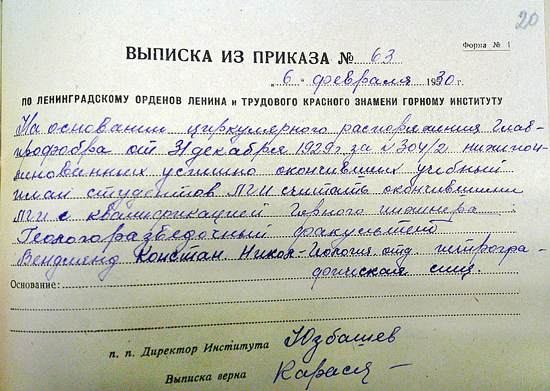 20
Форма № 1
ВЫПИСКА ИЗ ПРИКАЗА № 63
„6“ февраля 1930г.
ПО ЛЕНИНГРАДСКОМУ ОРДЕНОВ ЛЕНИНА и ТРУДОВОГО КРАСНОГО ЗНАМЕНИ ГОРНОМУ ИНСТИТУТУ
На основании циркулярного распоряжения Глав-
профобра от 31 декабря 1929г за № 304/2 нижепои-
минованных успешно окончивших учебный
план студентов ЛГИ считать окончившими
ЛГИ с квалификацией Горного инженера:
Геологоразведочный факультет
Вендлянд Констан. Никол-Геология отд. петрогра-
фическая спец.
Основание:
п. п. Директор Института Юзбашев
Выписка верна Карась